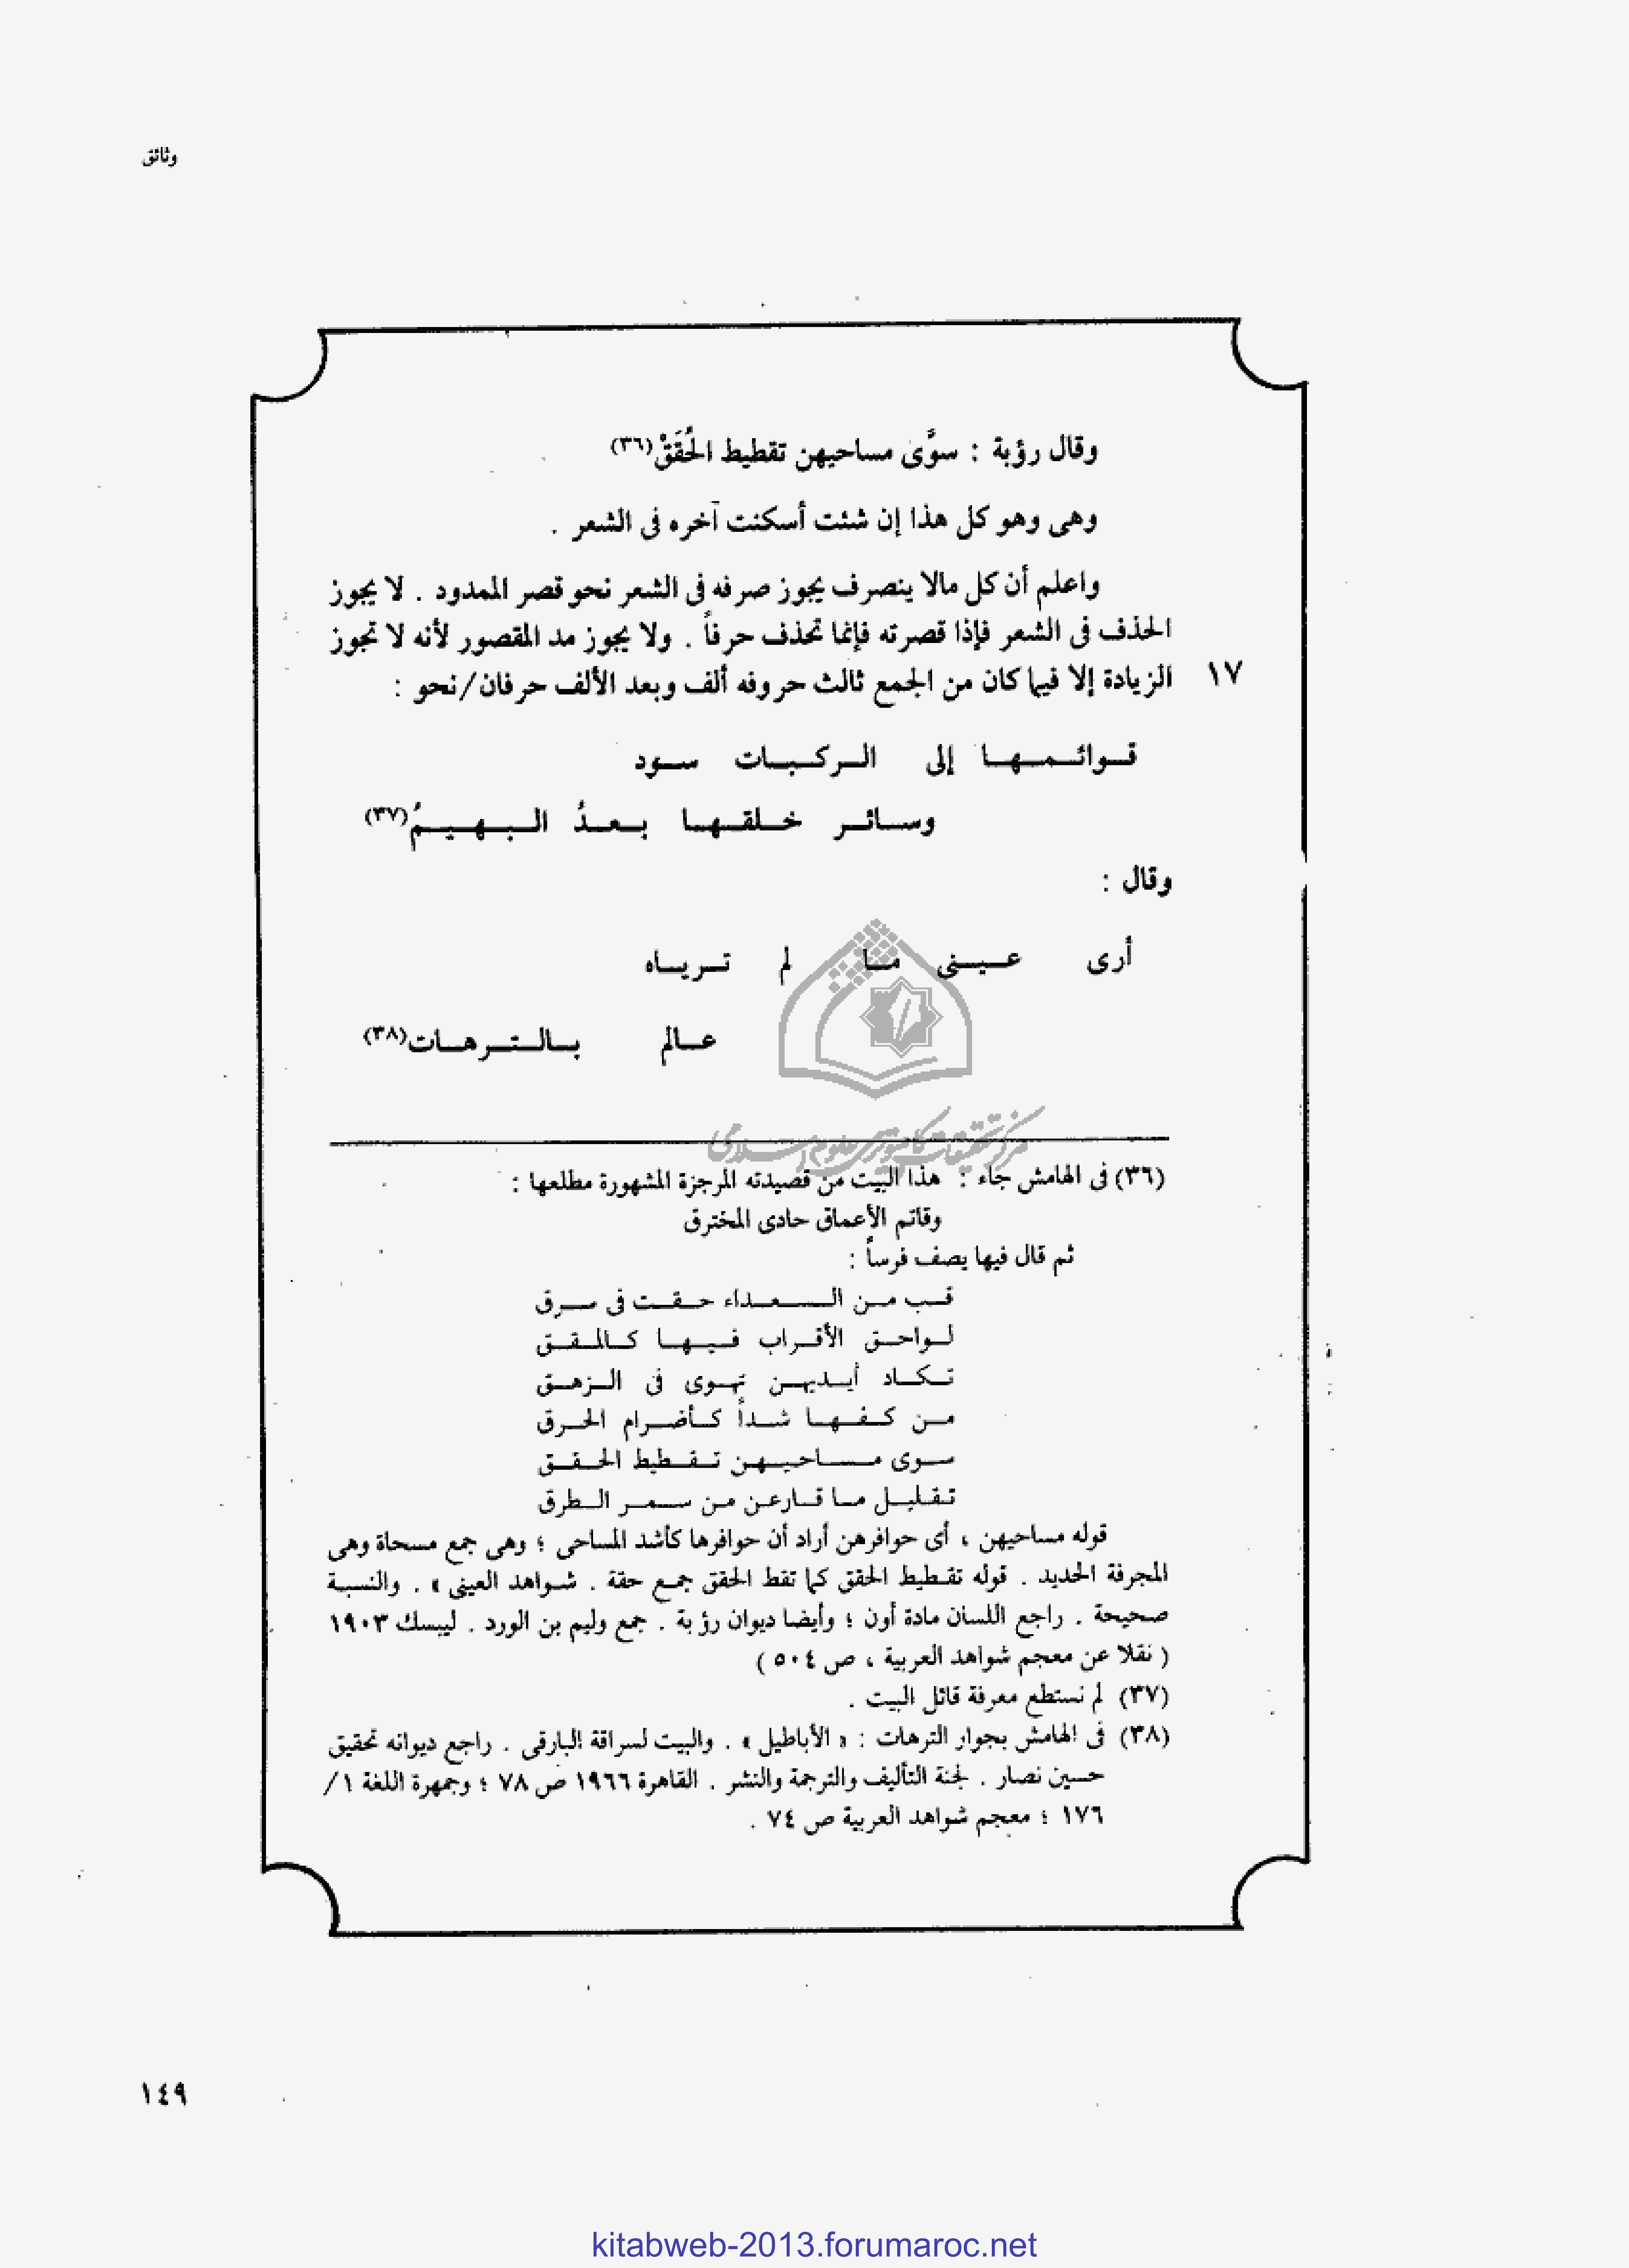 وثائق
وقال رؤبة : سوَّى مساحيهن تقطيط الحُقَقْ(٣٦)
وهى وهو كل هذا إن شئت أسكنت آخره فى الشعر .
واعلم أن كل مالا ينصرف يجوز صرفه فى الشعر نحو قصر الممدود . لا يجوز
الحذف فى الشعر فإذا قصرته فإنما تحذف حرفاً . ولا يجوز مد المقصور لأنه لا تجوز
١٧ الزيادة إلا فيما كان من الجمع ثالث حروفه ألف وبعد الألف حرفان/نحو :
قوائمها إلى الركبات سود
وسائر خلقها بعدُ البهيمُ(٣٧)
وقال :
أرى عينى ما لم ترياه
عالم بالترهات(٣٨)
مركز تحقيقات كامپيوترى علوم اسلامى
(٣٦) فى الهامش جاء : هذا البيت من قصيدته المرجزة المشهورة مطلعها :
وقاتم الأعماق حادى المخترق
ثم قال فيها يصف فرساً :
قب من السعداء حقت فى سرق
لواحق الأقراب فيها كالمقق
تكاد أيديهن تهوى فى الزهق
من كفها شداً كأضرام الحرق
سوى مساحيهن تقطيط الحقق
تقليل ما قارعن من سمر الطرق
قوله مساحيهن ، أى حوافرهن أراد أن حوافرها كأشد المساحى ؛ وهى جمع مسحاة وهى
المجرفة الحديد . قوله تقطيط الحقق كما تقط الحقق جمع حقة . شواهد العينى » . والنسبة
صحيحة . راجع اللسان مادة أون ؛ وأيضا ديوان رؤبة . جمع وليم بن الورد . ليبسك ١٩٠٣
( نقلا عن معجم شواهد العربية ، ص ٥٠٤ )
(٣٧) لم نستطع معرفة قائل البيت .
(٣٨) فى الهامش بجوار الترهات : « الأباطيل » . والبيت لسراقة البارقى . راجع ديوانه تحقيق
حسين نصار . لجنة التأليف والترجمة والنشر . القاهرة ١٩٦٦ ص ٧٨ ؛ وجمهرة اللغة ١/
١٧٦ ؛ معجم شواهد العربية ص ٧٤ .
١٤٩
kitabweb-2013.forumaroc.net